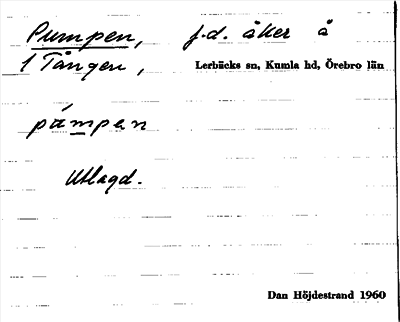 Pumpen, f.d. åker å
1 Tången, Lerbäcks sn, Kumla hd, Örebro län
pámpen
Utlagd.
Dan Höjdestrand 1960